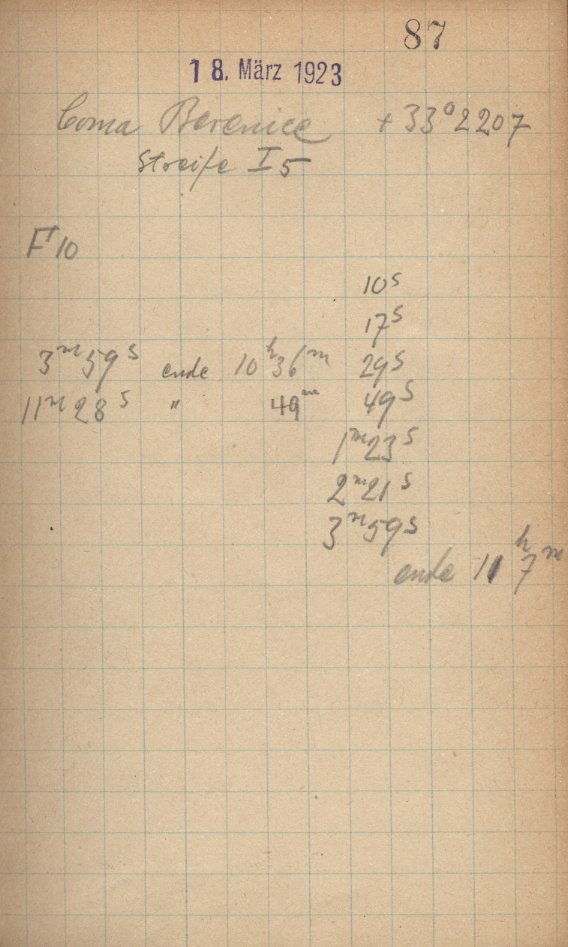 87
18. März 1923
Coma Berenice + 33° 2207
Streife I 5
F 10
10s
17s
3m 59s ende 10h 36m 29s
11m 28s " 49m 49s
1m 23s
2m 21s
3m 59s
ende 11h 7m